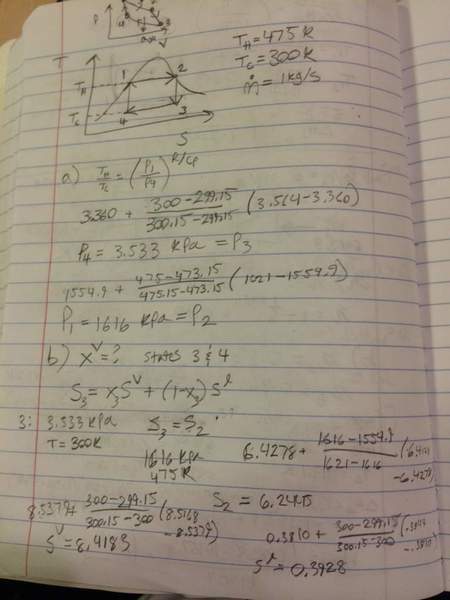 P
T
T_H = 475K
T_C = 300K
ṁ = 1kg/s
T_H 1 2
T_C 4 3
S
a) T_H/T_C = (P_1/P_4)^(R/Cp)
3.360 + (300 - 299.15)/(300.15 - 299.15) (3.564 - 3.360)
P_4 = 3.533 kPa = P_3
1554.9 + (475 - 473.15)/(475.15 - 473.15) (1621 - 1554.9)
P_1 = 1616 kPa = P_2
b) x^v = ? states 3 & 4
S_3 = x_3 S^v + (1-x_3) S^l
3: 3.533 kPa S_3 = S_2
T = 300K
1616 kPa
475K
6.4278 + (1616 - 1554.9)/(1621 - 1616) (
- 6.4278
8.5379 + (300 - 299.15)/(300.15 - 300) (8.5168
- 8.5379)
S_2 =
S^v = 8.4183
0.3810 + (300 - 299.15)/(300.15 - 300) (
- .3810)
S^l = 0.3928